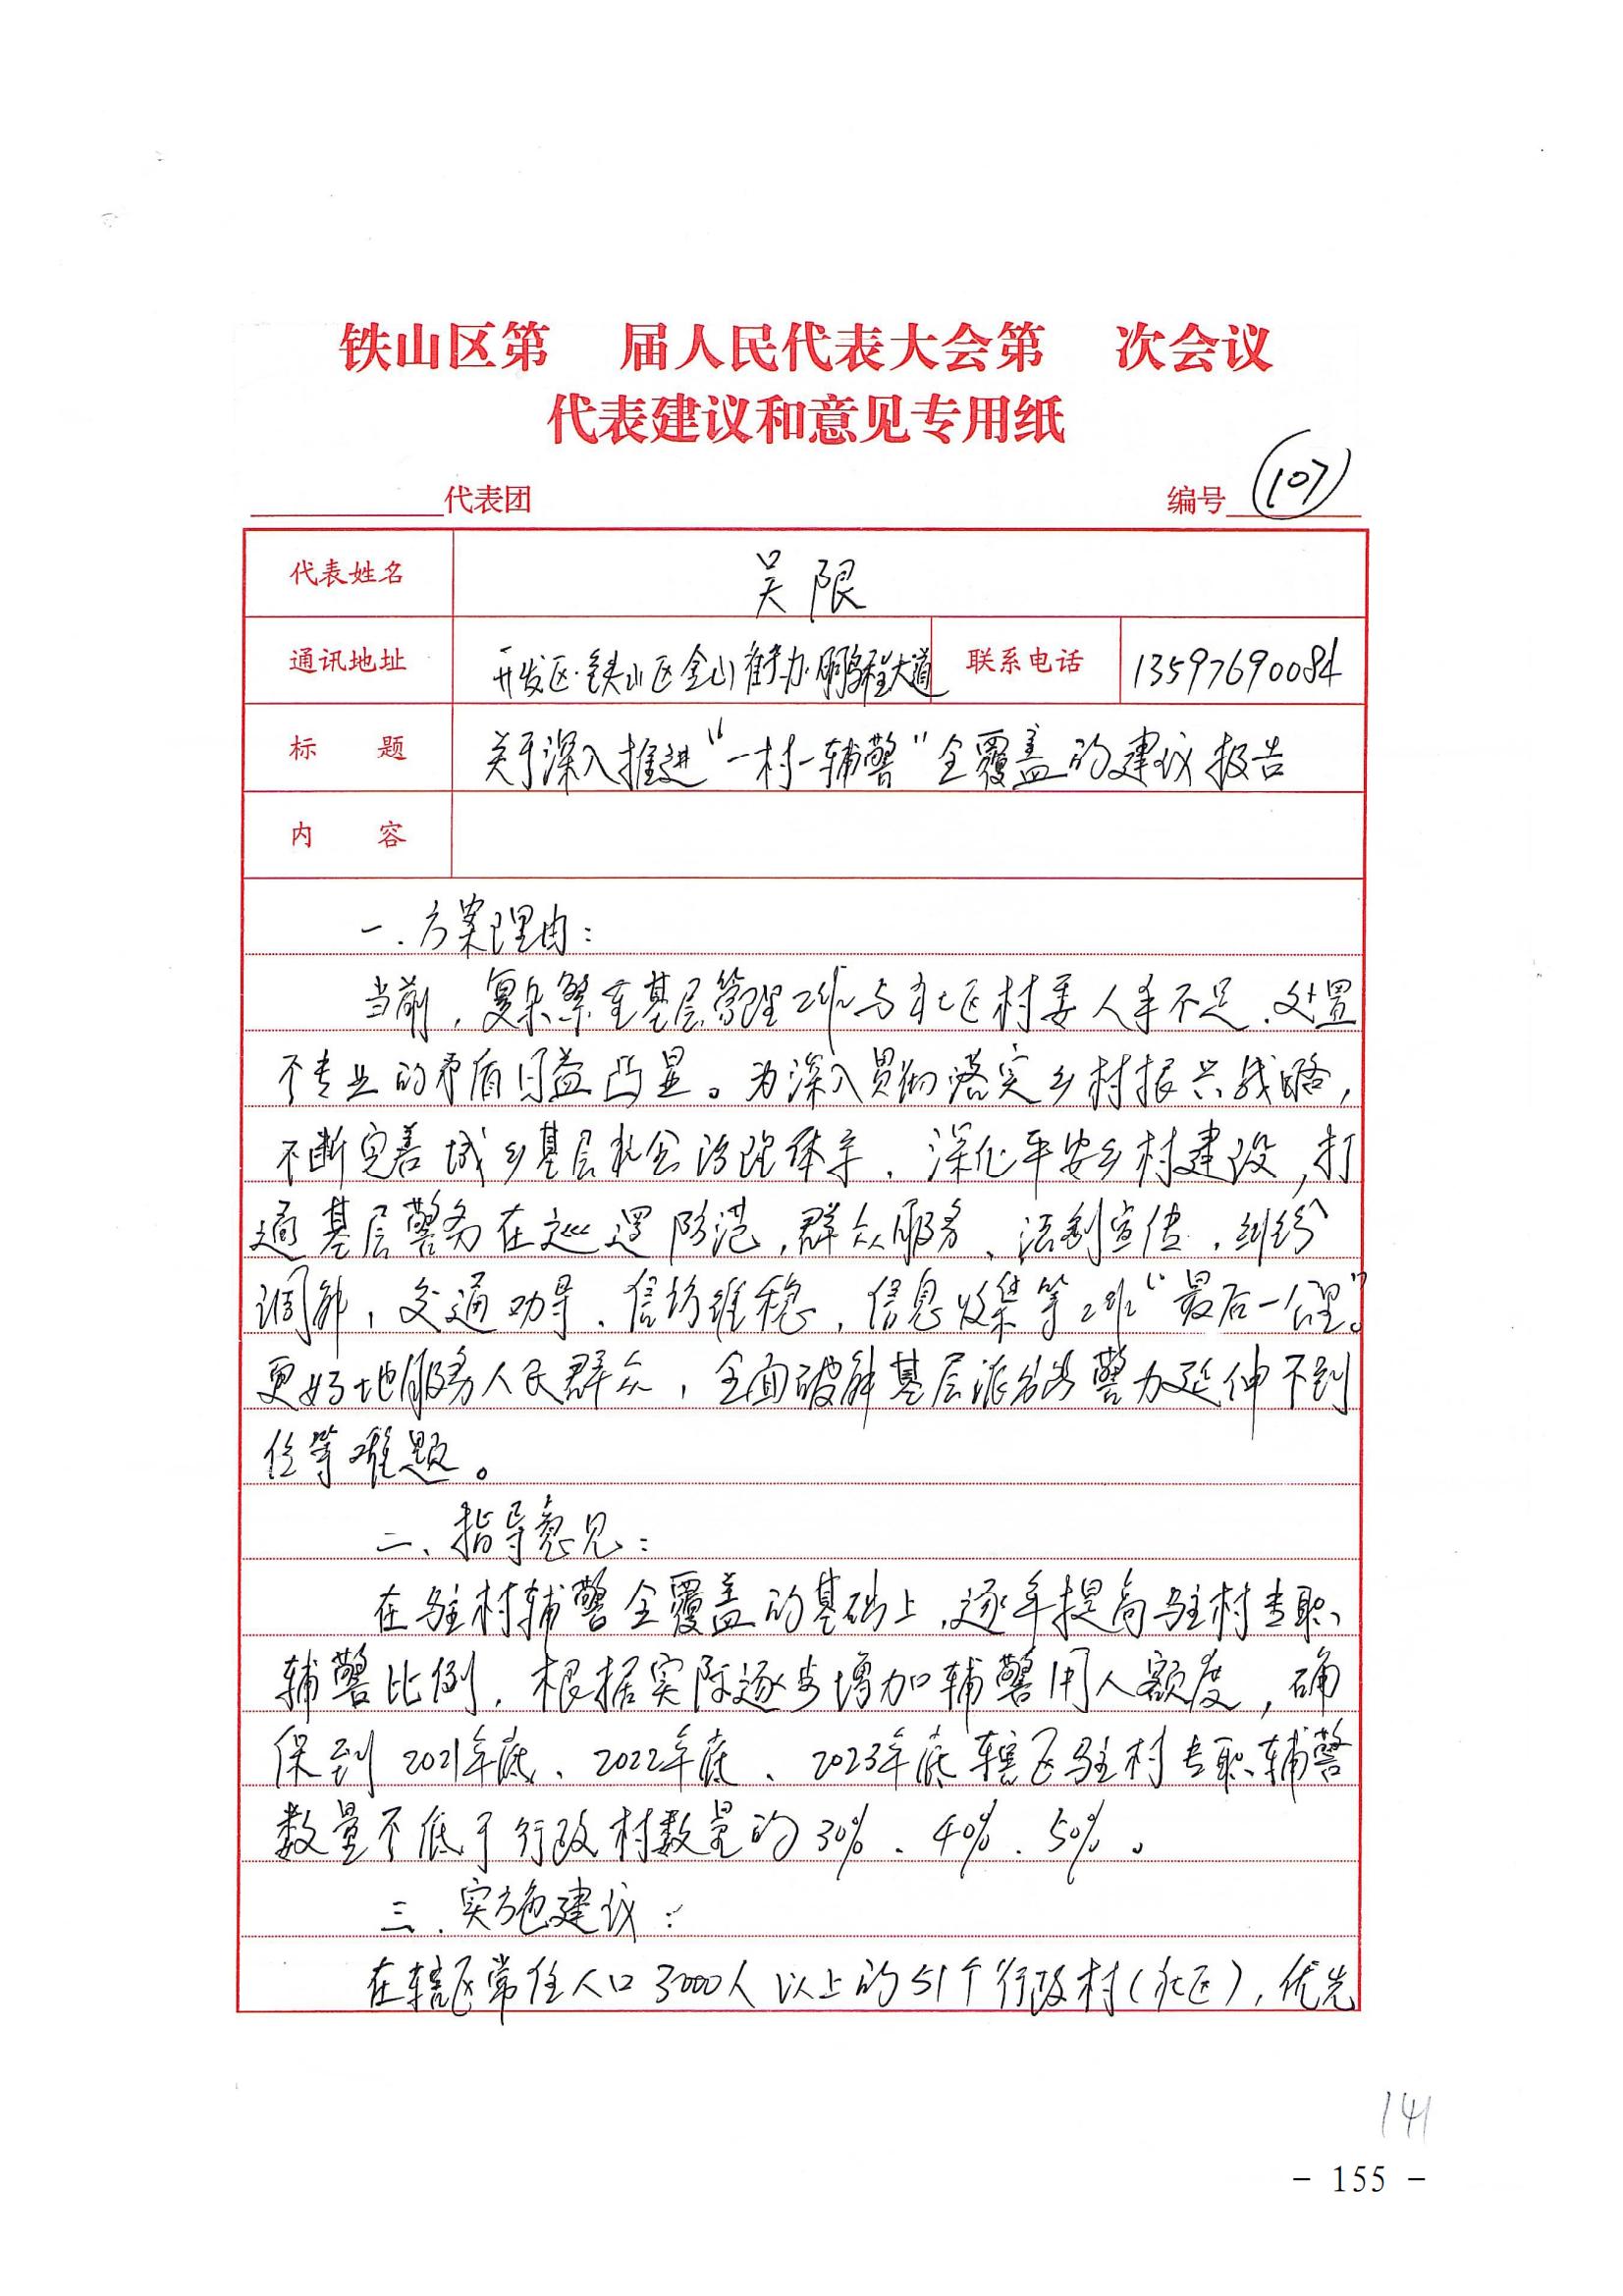 铁山区第 届人民代表大会第 次会议
代表建议和意见专用纸
代表团 编号 107
代表姓名 吴限
通讯地址 开发区·铁山区金山街办·鹏程大道 联系电话 13597690084
标 题 关于深入推进“一村一辅警”全覆盖的建议报告
内 容
一、方案理由：
当前，复杂繁重基层管理工作与社区村委人手不足、处置
不专业的矛盾日益凸显。为深入贯彻落实乡村振兴战略，
不断完善城乡基层社会治理体系，深化平安乡村建设，打
通基层警务在巡逻防范，群众服务、法制宣传，纠纷
调解，交通劝导、信访维稳，信息收集等工作“最后一公里”。
更好地服务人民群众，全面破解基层派出所警力延伸不到
位等难题。
二、指导意见：
在驻村辅警全覆盖的基础上，逐年提高驻村专职
辅警比例，根据实际逐步增加辅警用人额度，确
保到2021年底、2022年底、2023年底辖区驻村专职辅警
数量不低于行政村数量的30%、40%、50%。
三、实施建议：
在辖区常住人口3000人以上的51个行政村（社区），优先
141
- 155 -